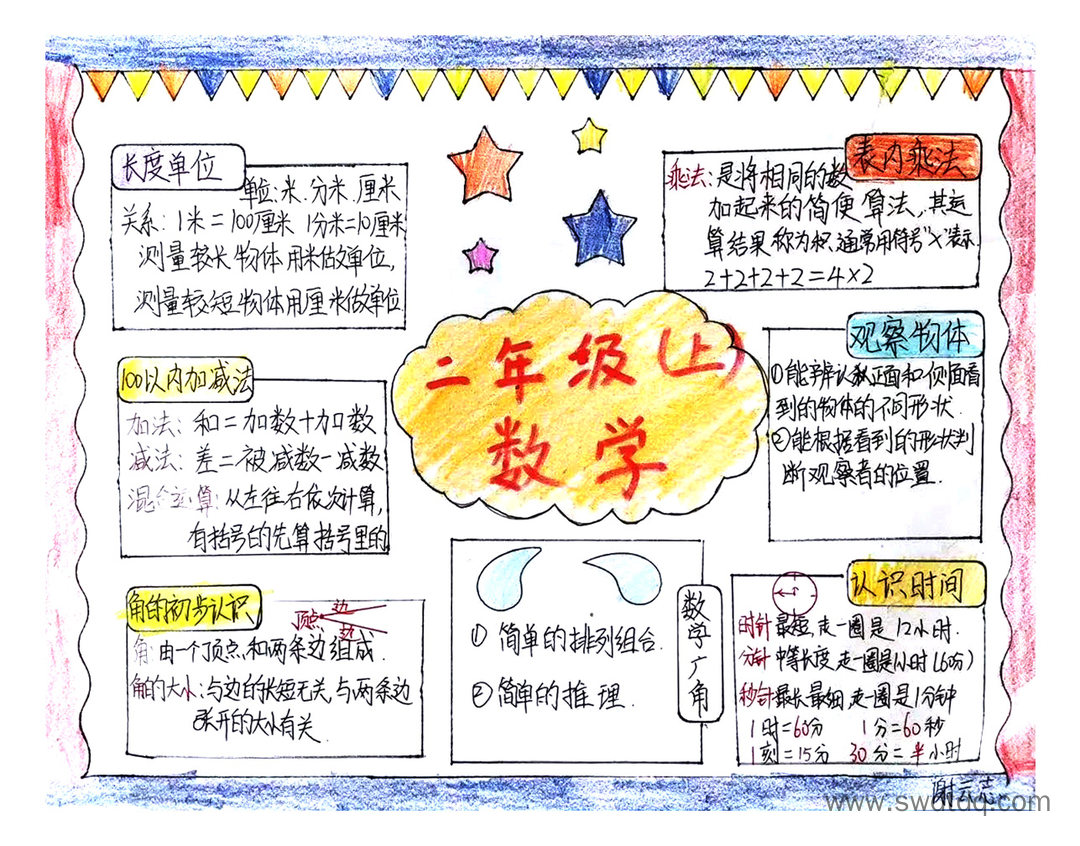 二年级(上)
数学
长度单位
单位:米.分米.厘米
关系:1米=100厘米 1分米=10厘米
测量较长物体用米做单位,
测量较短物体用厘米做单位
100以内加减法
加法:和=加数+加数
减法:差=被减数-减数
混合运算:从左往右依次计算,
有括号的先算括号里的
角的初步认识
顶点 边
边
角:由一个顶点和两条边组成.
角的大小:与边的长短无关,与两条边
张开的大小有关.
表内乘法
乘法:是将相同的数
加起来的简便算法,其运
算结果称为积,通常用符号"×"表示
2+2+2+2=4×2
观察物体
①能辨认从正面和侧面看
到的物体的不同形状.
②能根据看到的形状判
断观察者的位置.
数学广角
① 简单的排列组合.
② 简单的推理.
认识时间
时针最短,走一圈是12小时.
分针中等长度,走一圈是1小时(60分)
秒针最长最细,走一圈是1分钟
1时=60分 1分=60秒
1刻=15分 30分=半小时
www.swdtdq.com